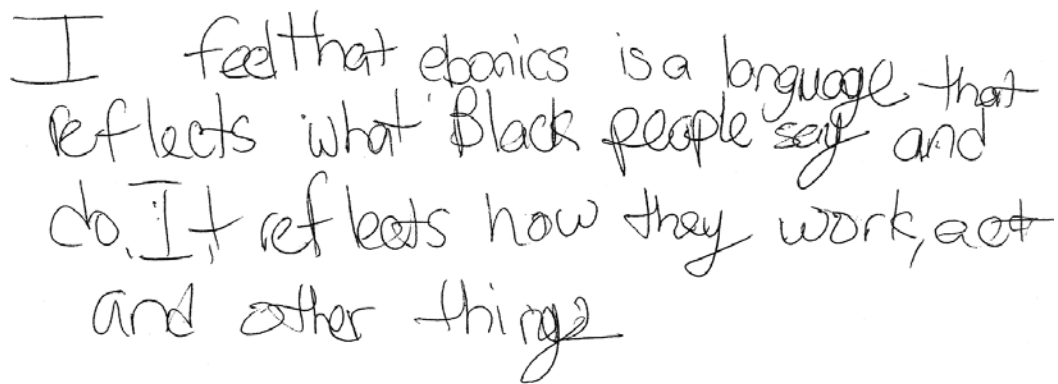 I feel that ebonics is a language that
reflects what Black people say and
do. It reflects how they work, act
and other things